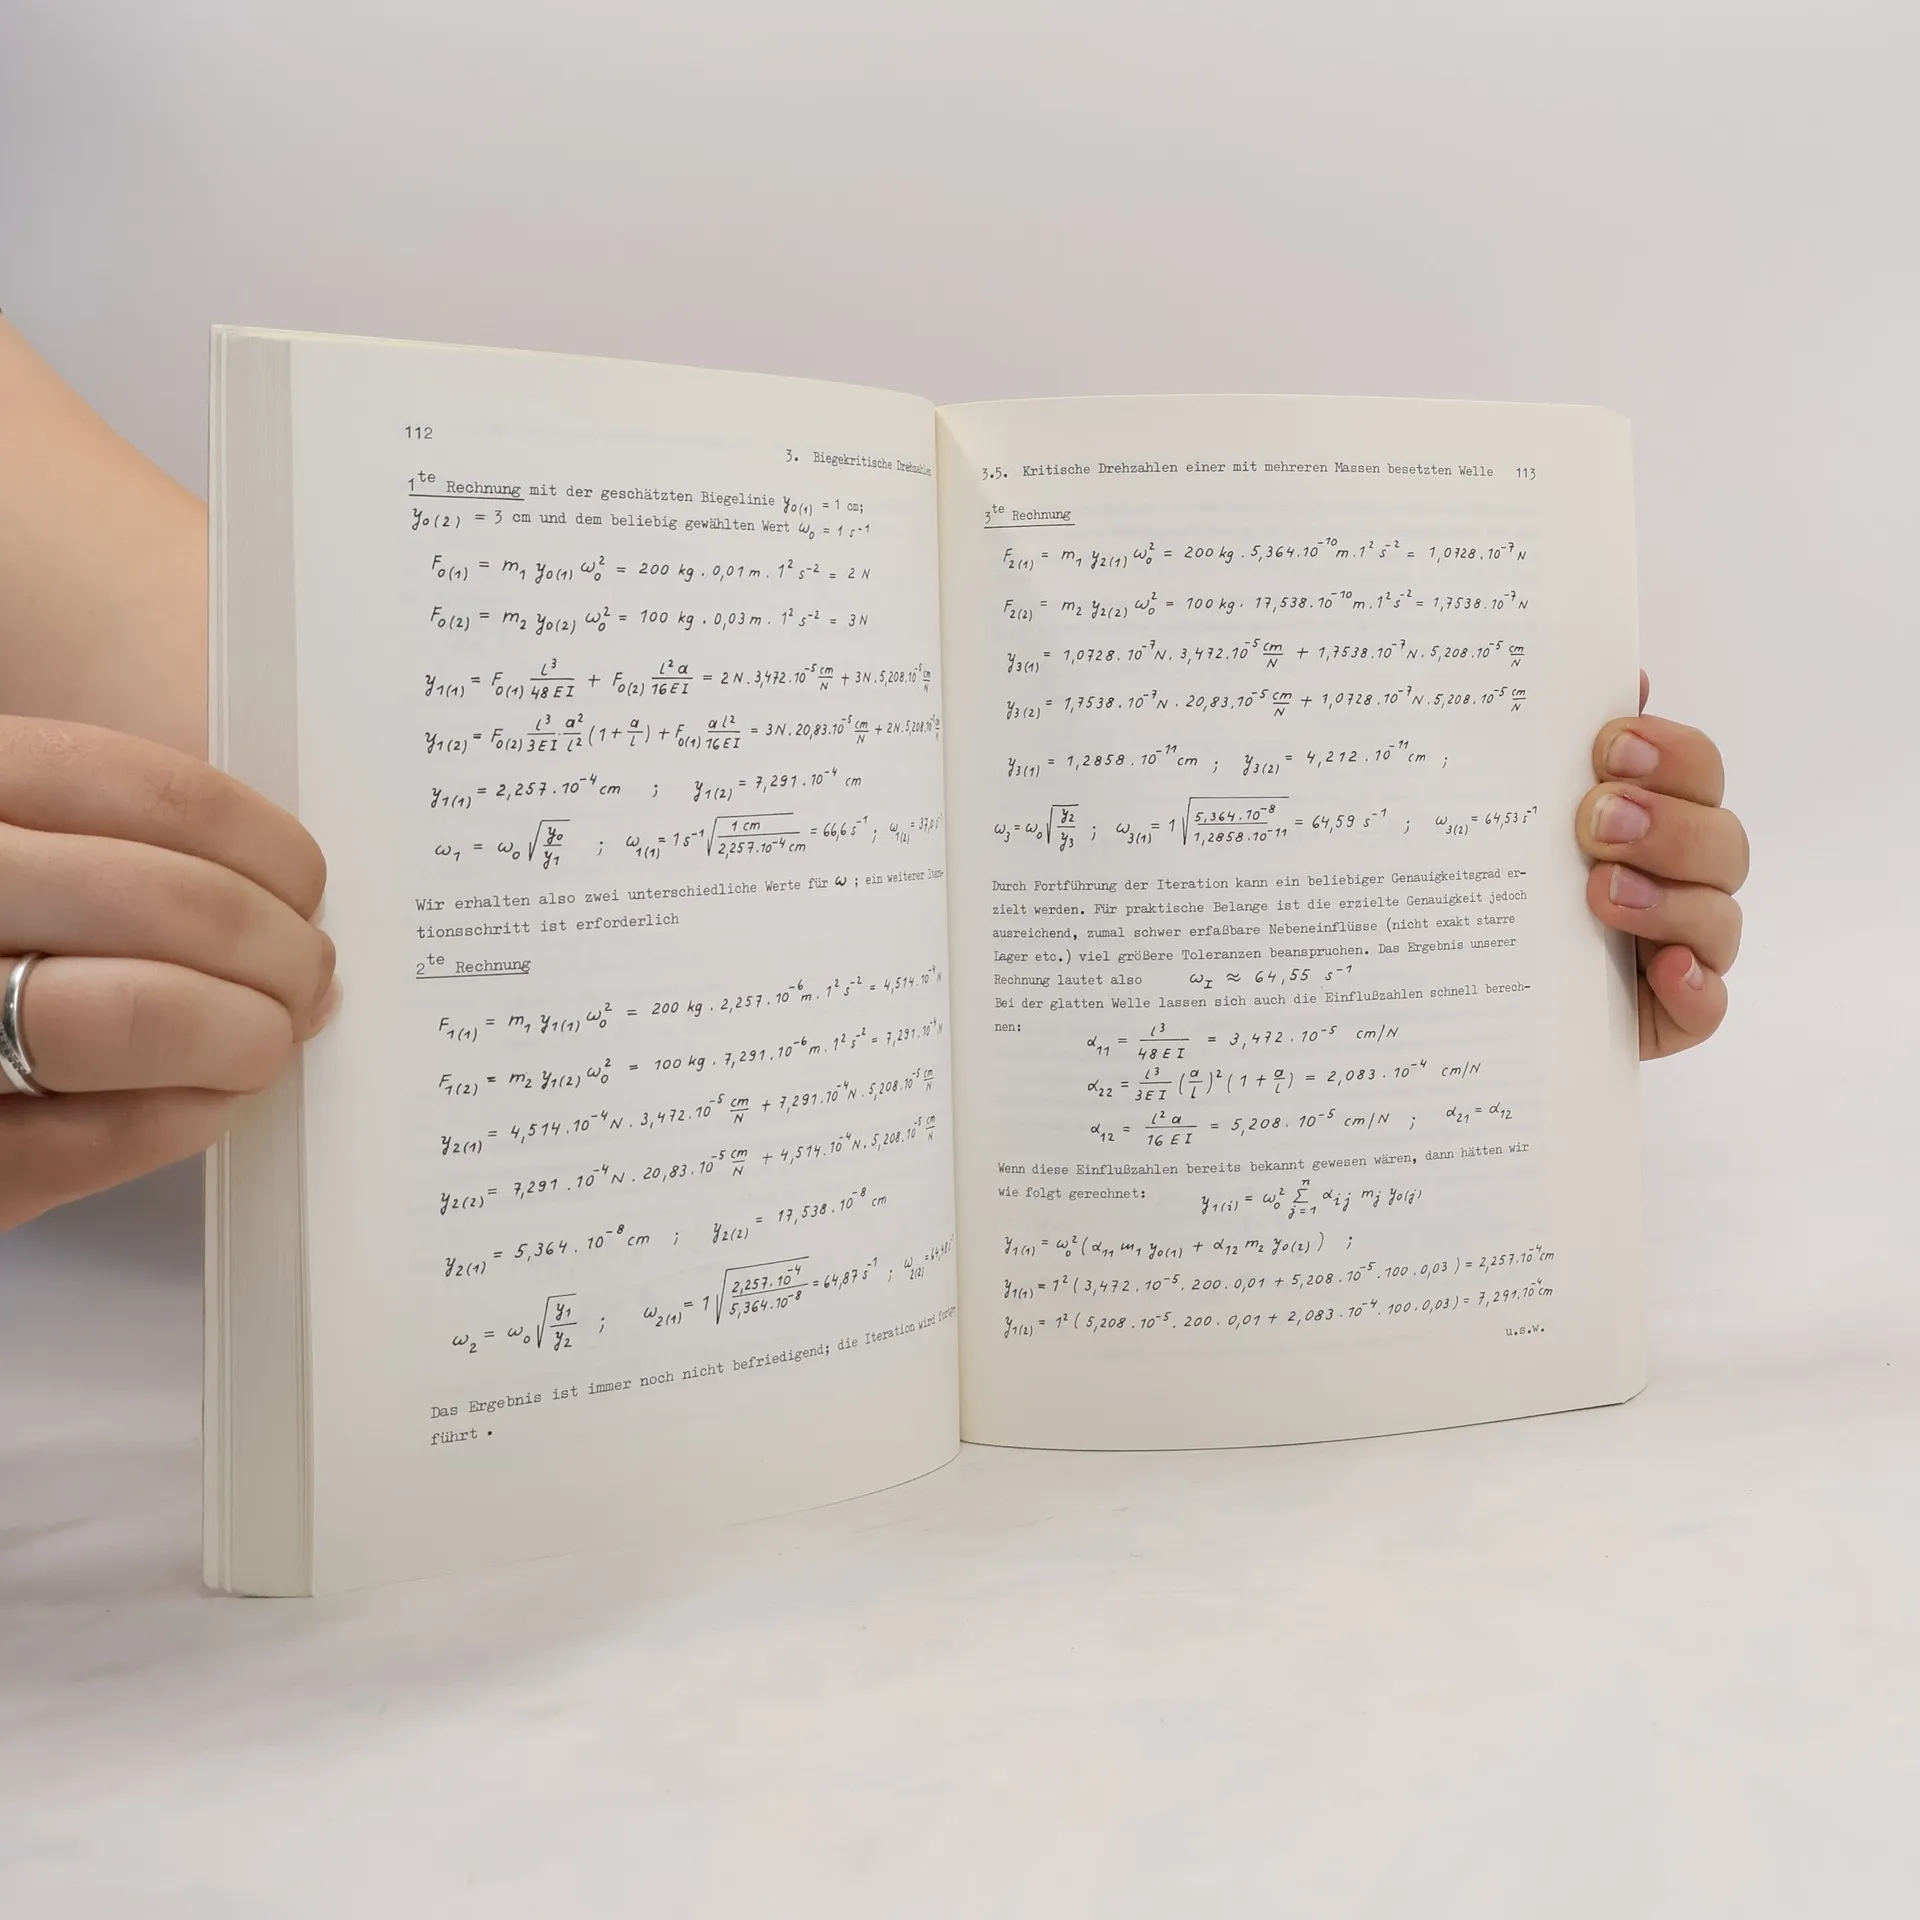 112
3. Biegekritische Drehzahlen
1te Rechnung mit der geschätzten Biegelinie y₀₍₁₎ = 1 cm;
y₀₍₂₎ = 3 cm und dem beliebig gewählten Wert ω₀ = 1 s⁻¹
F₀₍₁₎ = m₁ y₀₍₁₎ ω₀² = 200 kg . 0,01 m . 1² s⁻² = 2 N
F₀₍₂₎ = m₂ y₀₍₂₎ ω₀² = 100 kg . 0,03 m . 1² s⁻² = 3 N
y₁₍₁₎ = F₀₍₁₎ l³/48 EI + F₀₍₂₎ l² a/16 EI = 2 N . 3,472 . 10⁻⁵ cm/N + 3 N . 5,208 . 10⁻⁵ cm/N
y₁₍₂₎ = F₀₍₂₎ l³/3EI . a²/l² (1 + a/l) + F₀₍₁₎ a l²/16 EI = 3 N . 20,83 . 10⁻⁵ cm/N + 2 N . 5,208 . 10⁻⁵
y₁₍₁₎ = 2,257 . 10⁻⁴ cm ; y₁₍₂₎ = 7,291 . 10⁻⁴ cm
ω₁ = ω₀ √(y₀/y₁) ; ω₁₍₁₎ = 1 s⁻¹ √(1 cm/2,257 . 10⁻⁴ cm) = 66,6 s⁻¹ ; ω₁₍₂₎
Wir erhalten also zwei unterschiedliche Werte für ω ; ein weiterer Itera-
tionsschritt ist erforderlich
2te Rechnung
F₁₍₁₎ = m₁ y₁₍₁₎ ω₀² = 200 kg . 2,257 . 10⁻⁶ m . 1² s⁻² = 4,514 . 10⁻⁴ N
F₁₍₂₎ = m₂ y₁₍₂₎ ω₀² = 100 kg . 7,291 . 10⁻⁶ m . 1² s⁻² = 7,291 . 10⁻⁴ N
y₂₍₁₎ = 4,514 . 10⁻⁴ N . 3,472 . 10⁻⁵ cm/N + 7,291 . 10⁻⁴ N . 5,208 . 10⁻⁵ cm/N
y₂₍₂₎ = 7,291 . 10⁻⁴ N . 20,83 . 10⁻⁵ cm/N + 4,514 . 10⁻⁴ N . 5,208 . 10⁻⁵ cm/N
y₂₍₁₎ = 5,364 . 10⁻⁸ cm ; y₂₍₂₎ = 17,538 . 10⁻⁸ cm
ω₂ = ω₀ √(y₁/y₂) ; ω₂₍₁₎ = 1 √(2,257 . 10⁻⁴/5,364 . 10⁻⁸) = 64,87 s⁻¹ ; ω₂₍₂₎ = 64,48 s⁻¹
Das Ergebnis ist immer noch nicht befriedigend; die Iteration wird fortge-
führt .
3.5. Kritische Drehzahlen einer mit mehreren Massen besetzten Welle 113
3te Rechnung
F₂₍₁₎ = m₁ y₂₍₁₎ ω₀² = 200 kg . 5,364 . 10⁻¹⁰ m . 1² s⁻² = 1,0728 . 10⁻⁷ N
F₂₍₂₎ = m₂ y₂₍₂₎ ω₀² = 100 kg . 17,538 . 10⁻¹⁰ m . 1² s⁻² = 1,7538 . 10⁻⁷ N
y₃₍₁₎ = 1,0728 . 10⁻⁷ N . 3,472 . 10⁻⁵ cm/N + 1,7538 . 10⁻⁷ N . 5,208 . 10⁻⁵ cm/N
y₃₍₂₎ = 1,7538 . 10⁻⁷ N . 20,83 . 10⁻⁵ cm/N + 1,0728 . 10⁻⁷ N . 5,208 . 10⁻⁵ cm/N
y₃₍₁₎ = 1,2858 . 10⁻¹¹ cm ; y₃₍₂₎ = 4,212 . 10⁻¹¹ cm ;
ω₃ = ω₀ √(y₂/y₃) ; ω₃₍₁₎ = 1 √(5,364 . 10⁻⁸/1,2858 . 10⁻¹¹) = 64,59 s⁻¹ ; ω₃₍₂₎ = 64,53 s⁻¹
Durch Fortführung der Iteration kann ein beliebiger Genauigkeitsgrad er-
zielt werden. Für praktische Belange ist die erzielte Genauigkeit jedoch
ausreichend, zumal schwer erfaßbare Nebeneinflüsse (nicht exakt starre
Lager etc.) viel größere Toleranzen beanspruchen. Das Ergebnis unserer
Rechnung lautet also ω_I ≈ 64,55 s⁻¹
Bei der glatten Welle lassen sich auch die Einflußzahlen schnell berech-
nen:
α₁₁ = l³/48 EI = 3,472 . 10⁻⁵ cm/N
α₂₂ = l³/3EI (a/l)² (1 + a/l) = 2,083 . 10⁻⁴ cm/N
α₁₂ = l² a/16 EI = 5,208 . 10⁻⁵ cm/N ; α₂₁ = α₁₂
Wenn diese Einflußzahlen bereits bekannt gewesen wären, dann hätten wir
wie folgt gerechnet: y₁₍ᵢ₎ = ω₀² Σⁿⱼ₌₁ αᵢⱼ mⱼ y₀₍ⱼ₎
y₁₍₁₎ = ω₀² (α₁₁ m₁ y₀₍₁₎ + α₁₂ m₂ y₀₍₂₎) ;
y₁₍₁₎ = 1² (3,472 . 10⁻⁵ . 200 . 0,01 + 5,208 . 10⁻⁵ . 100 . 0,03) = 2,257 . 10⁻⁴ cm
y₁₍₂₎ = 1² (5,208 . 10⁻⁵ . 200 . 0,01 + 2,083 . 10⁻⁴ . 100 . 0,03) = 7,291 . 10⁻⁴ cm
u.s.w.